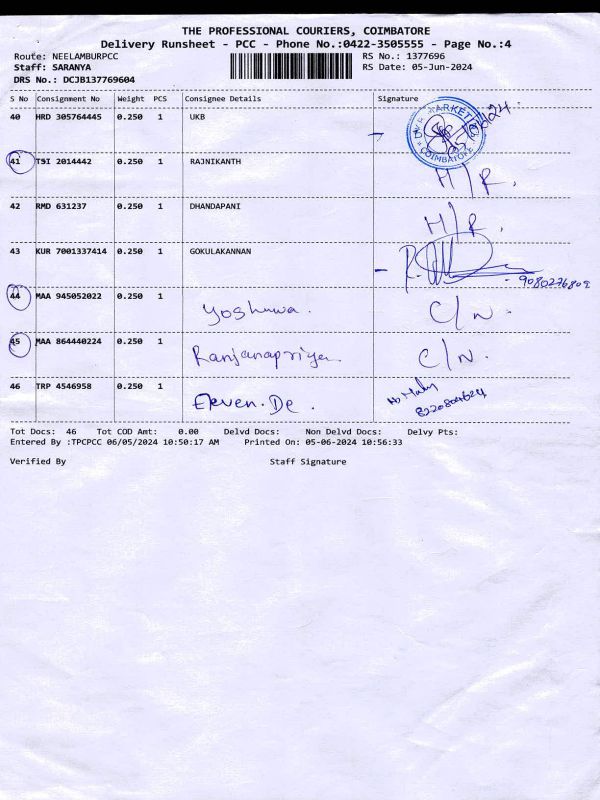 THE PROFESSIONAL COURIERS, COIMBATORE
Delivery Runsheet - PCC - Phone No.:0422-3505555 - Page No.:4
Route: NEELAMBURPCC RS No.: 1377696
Staff: SARANYA RS Date: 05-Jun-2024
DRS No.: DCJB137769604
S No Consignment No Weight PCS Consignee Details Signature
40 HRD 305764445 0.250 1 UKB
MARKET
COIMBATORE
41 TSI 2014442 0.250 1 RAJNIKANTH H/R.
42 RMD 631237 0.250 1 DHANDAPANI H/R.
43 KUR 7001337414 0.250 1 GOKULAKANNAN
9080276809
44 MAA 945052022 0.250 1 Yoshuwa. C/N.
45 MAA 864440224 0.250 1 Ranjanapriya C/N.
46 TRP 4546958 0.250 1
Tot Docs: 46 Tot COD Amt: 0.00 Delvd Docs: Non Delvd Docs: Delvy Pts:
Entered By :TPCPCC 06/05/2024 10:50:17 AM Printed On: 05-06-2024 10:56:33
Verified By Staff Signature